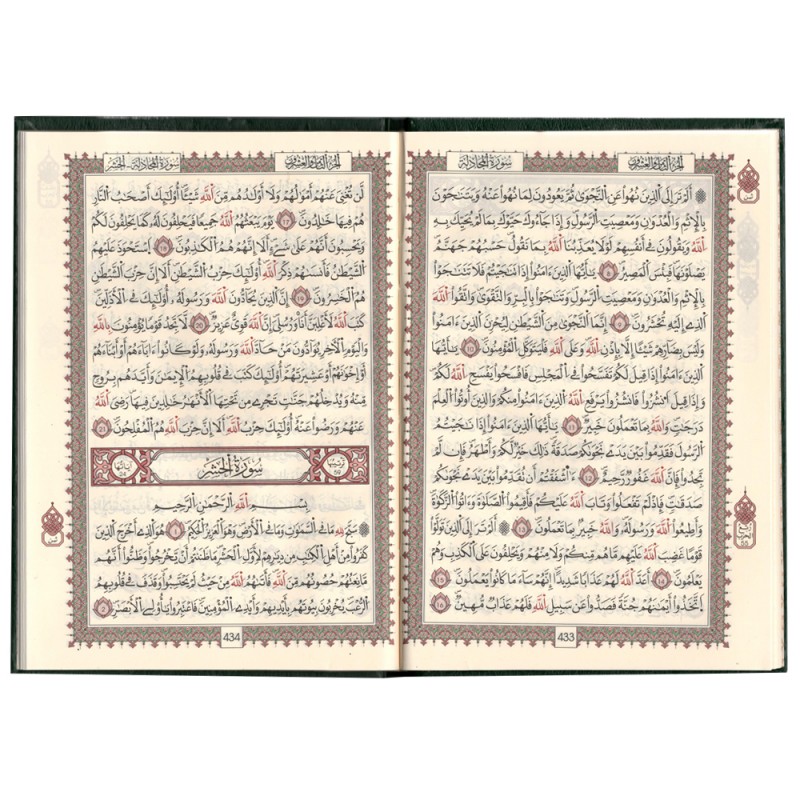 الجزء الثامن والعشرون
سورة المجادلة
۞ ألم تر إلى الذين نهوا عن النجوى ثم يعودون لما نهوا عنه ويتناجون
بالإثم والعدوان ومعصيت الرسول وإذا جاءوك حيوك بما لم يحيك به
الله ويقولون في أنفسهم لولا يعذبنا الله بما نقول حسبهم جهنم
يصلونها فبيس المصير 8 يأيها الذين ءامنوا إذا تناجيتم فلا تتناجوا
بالإثم والعدوان ومعصيت الرسول وتناجوا بالبر والتقوى واتقوا الله
الذي إليه تحشرون 9 إنما النجوى من الشيطان ليحزن الذين ءامنوا
وليس بضارهم شيئا إلا بإذن الله وعلى الله فليتوكل المؤمنون 10 يأيها
الذين ءامنوا إذا قيل لكم تفسحوا في المجلس فافسحوا يفسح الله لكم
وإذا قيل انشزوا فانشزوا يرفع الله الذين ءامنوا منكم والذين أوتوا العلم
درجات والله بما تعملون خبير 11 يأيها الذين ءامنوا إذا ناجيتم
الرسول فقدموا بين يدي نجويكم صدقة ذلك خير لكم وأطهر فإن لم
تجدوا فإن الله غفور رحيم 12 ءاشفقتم أن تقدموا بين يدي نجويكم
صدقات فإذ لم تفعلوا وتاب الله عليكم فأقيموا الصلوة وءاتوا الزكوة
وأطيعوا الله ورسوله والله خبير بما تعملون 13 ۞ ألم تر إلى الذين تولوا
قوما غضب الله عليهم ما هم منكم ولا منهم ويحلفون على الكذب وهم
يعلمون 14 أعد الله لهم عذابا شديدا إنهم ساء ما كانوا يعملون 15
اتخذوا أيمانهم جنة فصدوا عن سبيل الله فلهم عذاب مهين 16
433
ثمن
الجزء الثامن والعشرون
سورة المجادلة - الحشر
لن تغني عنهم أموالهم ولا أولادهم من الله شيئا أولئك أصحاب النار
هم فيها خالدون 17 يوم يبعثهم الله جميعا فيحلفون له كما يحلفون لكم
ويحسبون أنهم على شيء ألا إنهم هم الكاذبون 18 استحوذ عليهم
الشيطان فأنسيهم ذكر الله أولئك حزب الشيطان ألا إن حزب الشيطان
هم الخاسرون 19 إن الذين يحادون الله ورسوله أولئك في الأذلين
كتب الله لأغلبن أنا ورسلي إن الله قوي عزيز 20 لا تجد قوما يؤمنون بالله
واليوم الآخر يوادون من حاد الله ورسوله ولو كانوا ءاباءهم أو أبناءهم
أو إخوانهم أو عشيرتهم أولئك كتب في قلوبهم الإيمان وأيدهم بروح
منه ويدخلهم جنات تجري من تحتها الأنهار خالدين فيها رضي الله
عنهم ورضوا عنه أولئك حزب الله ألا إن حزب الله هم المفلحون 21
ترتيبها 59
سورة الحشر
آياتها 24
بسم الله الرحمن الرحيم
۞ سبح لله ما في السماوات وما في الأرض وهو العزيز الحكيم 1 هو الذي أخرج الذين
كفروا من أهل الكتاب من ديارهم لأول الحشر ما ظننتم أن يخرجوا وظنوا أنهم
مانعتهم حصونهم من الله فأتيهم الله من حيث لم يحتسبوا وقذف في قلوبهم
الرعب يخربون بيوتهم بأيديهم وأيدي المؤمنين فاعتبروا يأولي الأبصار 2
434
ثمن